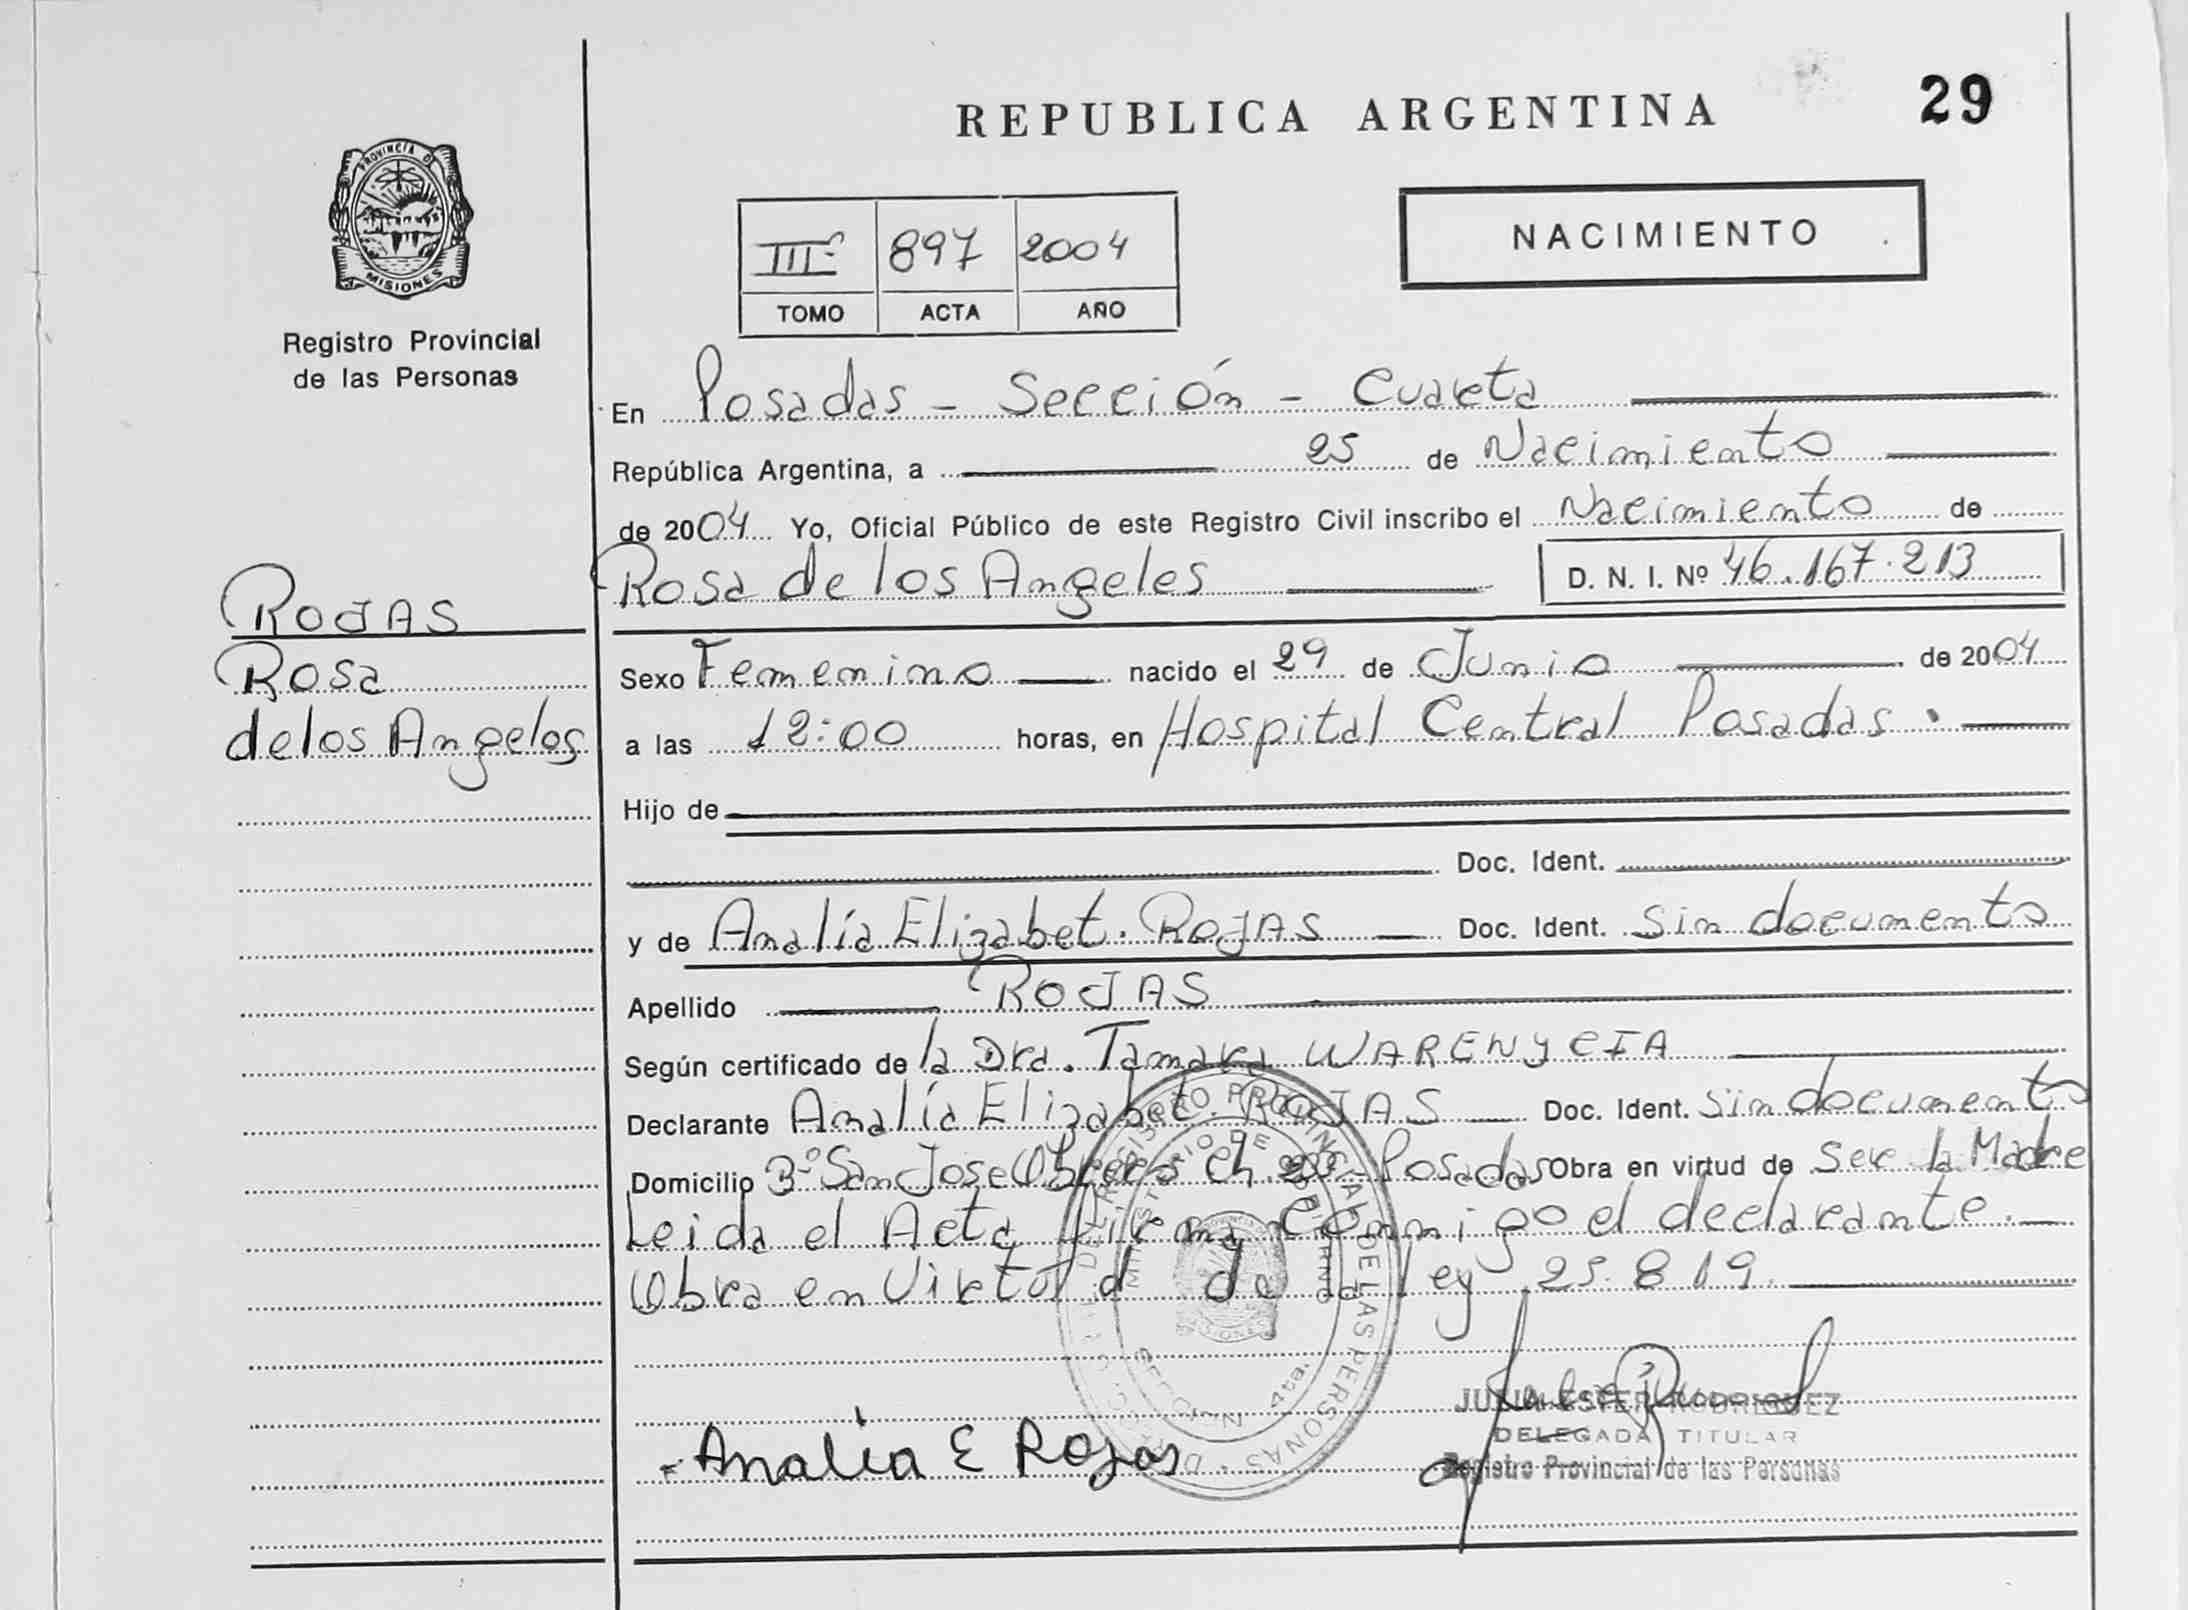 REPUBLICA ARGENTINA 29
PROVINCIA DE
MISIONES
Registro Provincial
de las Personas
III 897 2004
TOMO ACTA AÑO
NACIMIENTO
En Posadas - Sección - Cuarta
República Argentina, a 25 de Nacimiento
de 2004 Yo, Oficial Público de este Registro Civil inscribo el Nacimiento de
Rosa de los Angeles D. N. I. Nº 46.167.213
ROJAS
Rosa
de los Angeles
Sexo Femenino nacido el 29 de Junio de 2004
a las 12:00 horas, en Hospital Central Posadas.
Hijo de
Doc. Ident.
y de Analía Elizabet. ROJAS Doc. Ident. Sin documento
Apellido ROJAS
Según certificado de la Dra. Tamara WARENYCIA
Declarante Analía Elizabet. ROJAS Doc. Ident. Sin documento
Domicilio Bº San Jose Obrero Ch. Posadas Obra en virtud de Ser la Madre
Leida el Acta firma conmigo el declarante.
Obra en Virtud de la ley 25.819.
REGISTRO PROVINCIAL DE LAS PERSONAS
MINISTERIO DE GOBIERNO
MISIONES
SECCION 4ta.
Analia E Rojas
JULIA ESTER RODRIGUEZ
DELEGADA TITULAR
Registro Provincial de las Personas